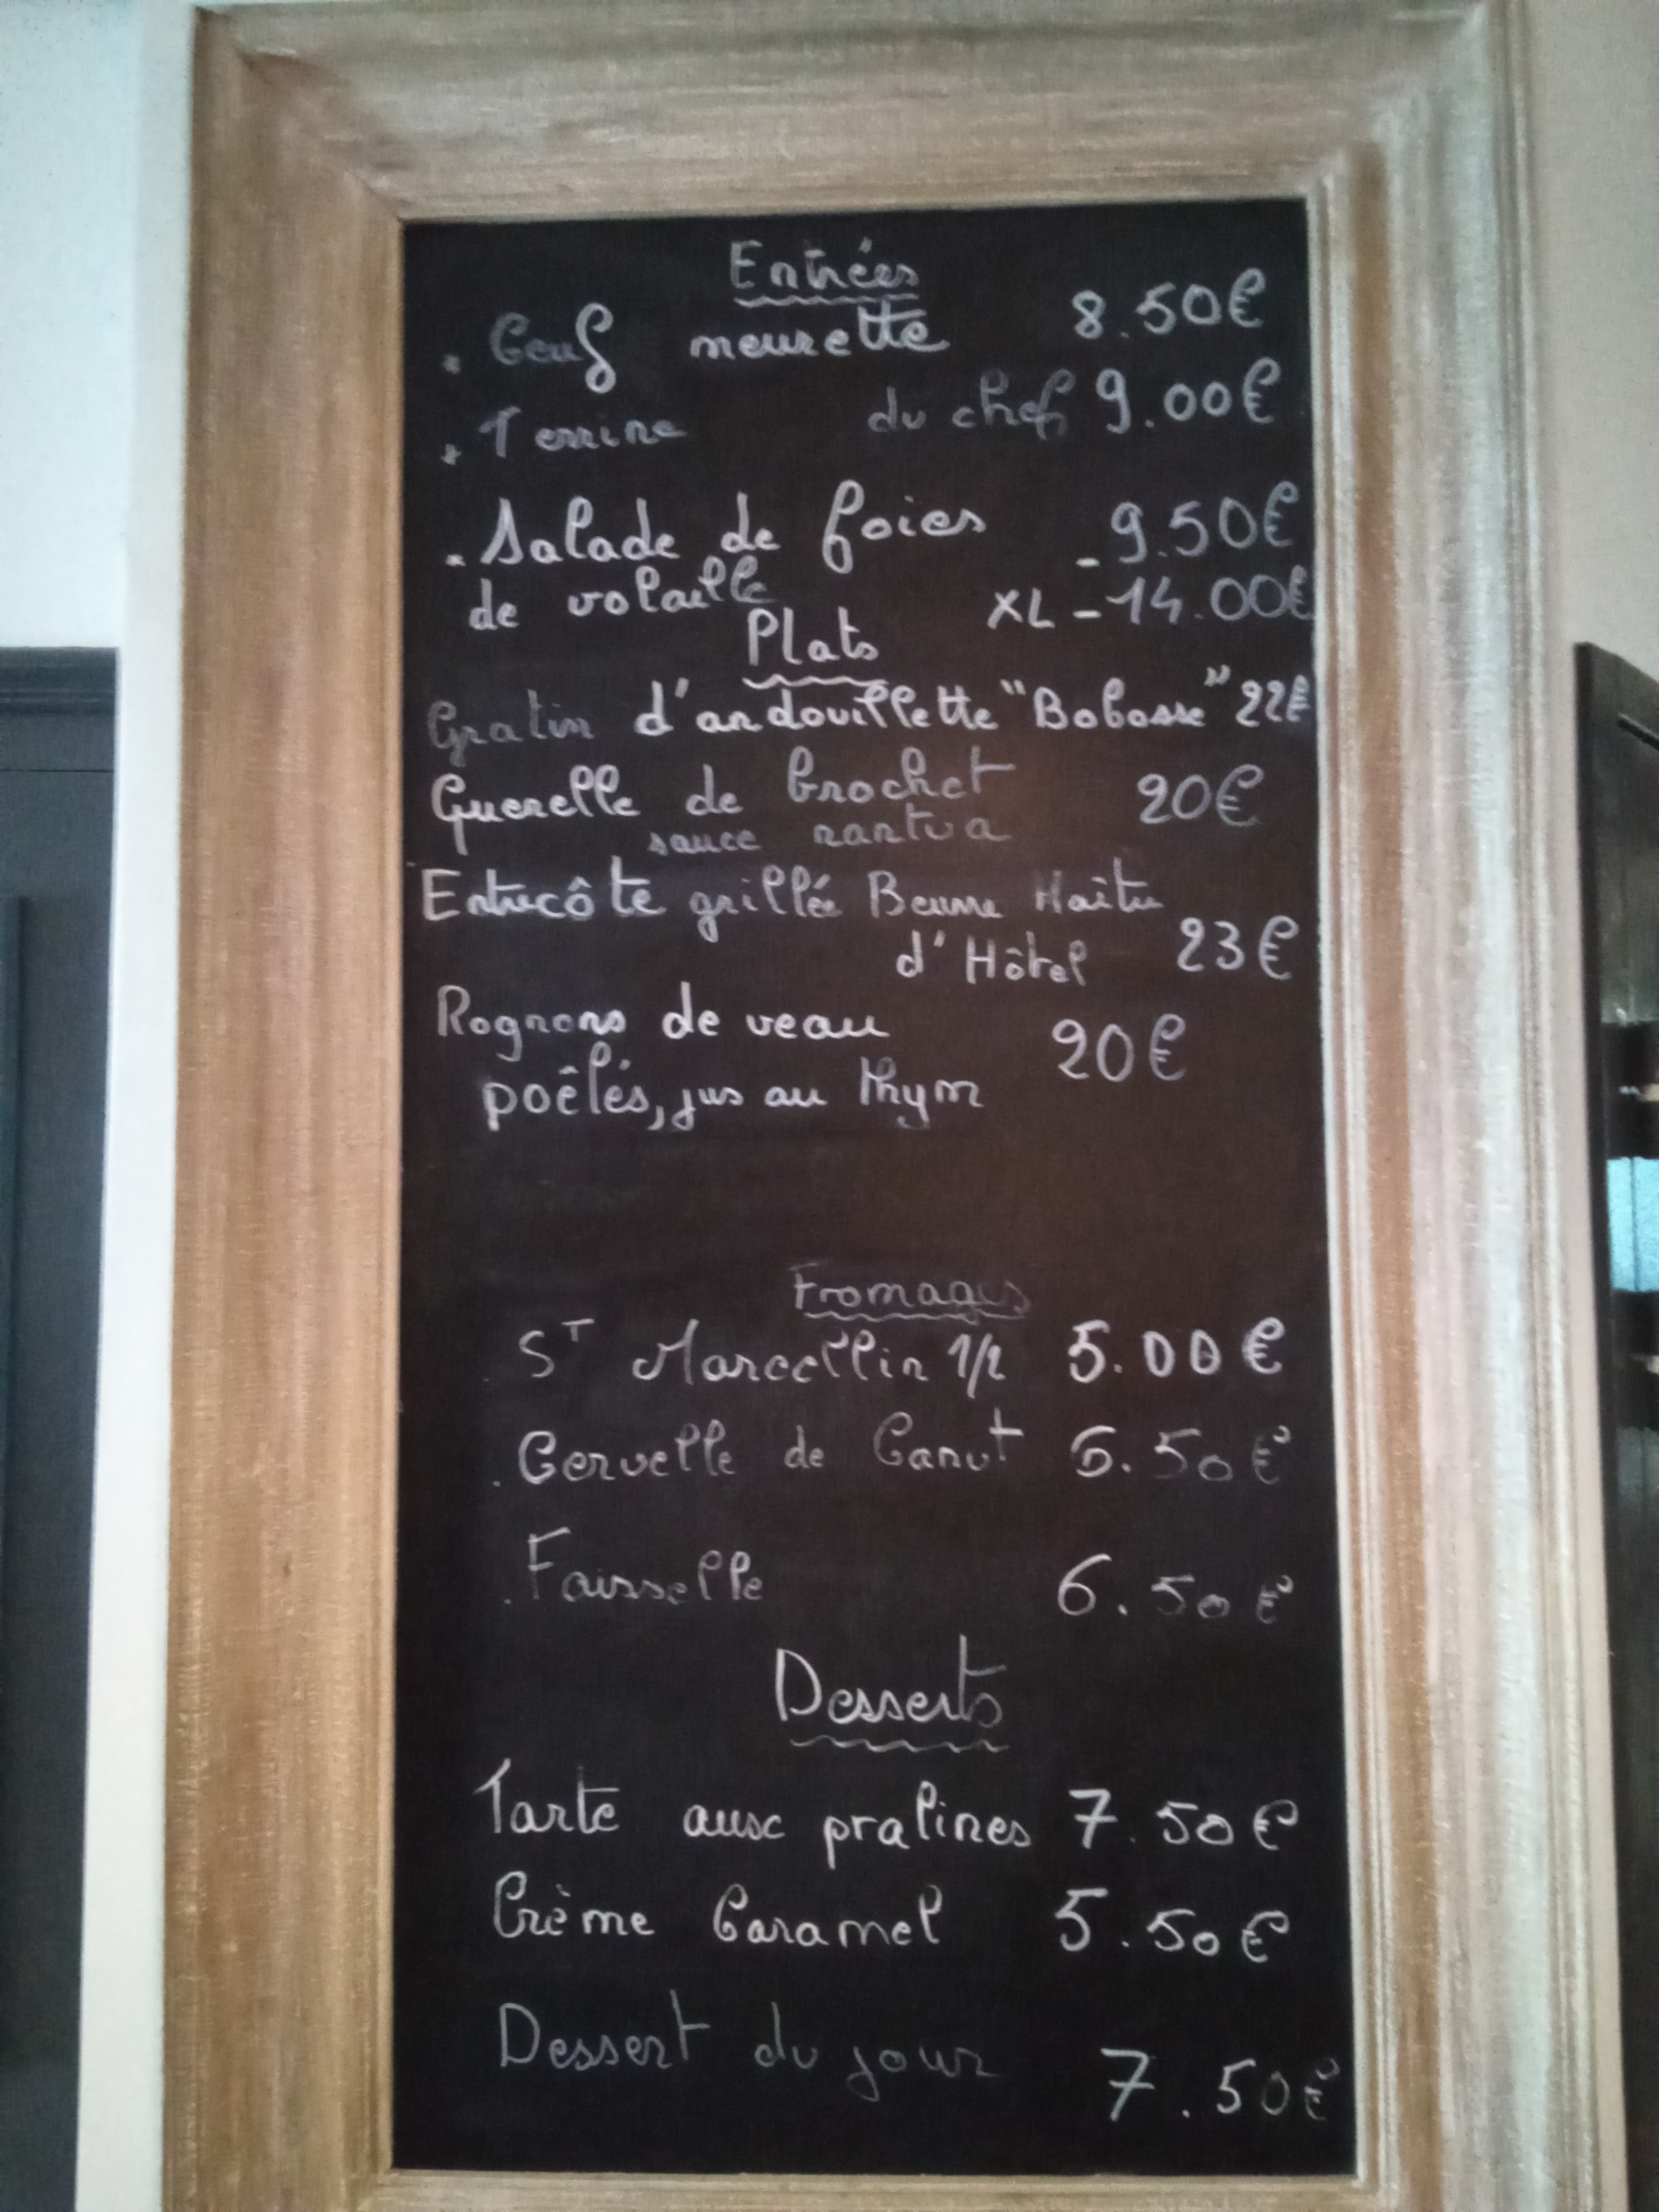 Entrées
* Oeuf meurette 8.50€
* Terrine du chef 9.00€
. Salade de foies - 9.50€
de volaille XL - 14.00€
Plats
Gratin d'andouillette "Bobosse" 22€
Quenelle de brochet 20€
sauce nantua
Entrecôte grillée Beurre Maître
d'Hôtel 23€
Rognons de veau 20€
poêlés, jus au thym
Fromages
. ST Marcellin 1/2 5.00€
. Cervelle de Canut 6.50€
. Faisselle 6.50€
Desserts
Tarte aux pralines 7.50€
Crème Caramel 5.50€
Dessert du jour 7.50€